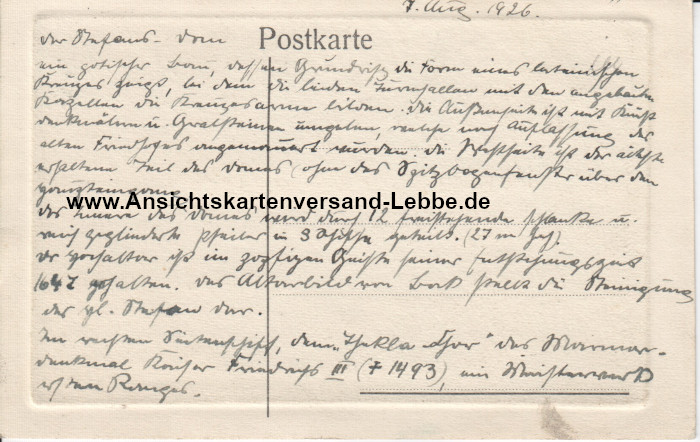 7. Aug. 1926.
Postkarte
der Stefans-dom
ein gotischer Bau, dessen Grundriß die Form eines lateinischen
Kreuzes zeigt, bei dem die beiden Turmhallen mit den angebauten
Kapellen die Kreuzesarme bilden. Die Außenseite ist mit Kunst
denkmälern u. Grabsteinen umgeben, welche nach Auflassung des
alten Friedhofes eingemauert wurden. die Westseite ist der älteste
erhaltene Teil des Domes (ohne das Spitzbogenfenster über dem
www.Ansichtskartenversand-Lebbe.de
das Innere des Domes wird durch 12 freistehende schlanke u.
reich gegliederte Pfeiler in 3 Schiffe geteilt. (27 m
der Hochaltar ist im zopfigen Geiste seiner Entstehungszeit
1647 gehalten. das Altarbild von Bock stellt die Steinigung
des hl. Stefan dar.
Im rechten Seitenschiff, dem "Thekla-Chor" das Marmor-
denkmal Kaiser Friedrichs III († 1493), ein Meisterwerk
ersten Ranges.